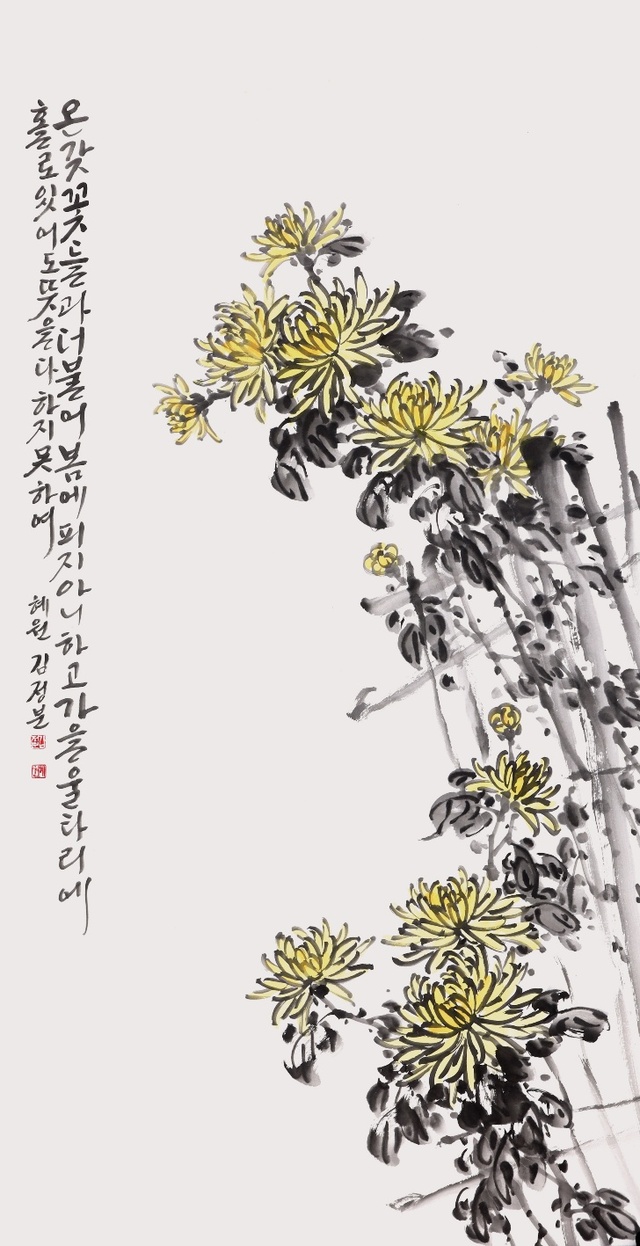 온갖 꽃들과 더불어 봄에 피지 아니하고 가을 울타리에
홀로 있어도 뜻을 다하지 못하여
혜원 김정분